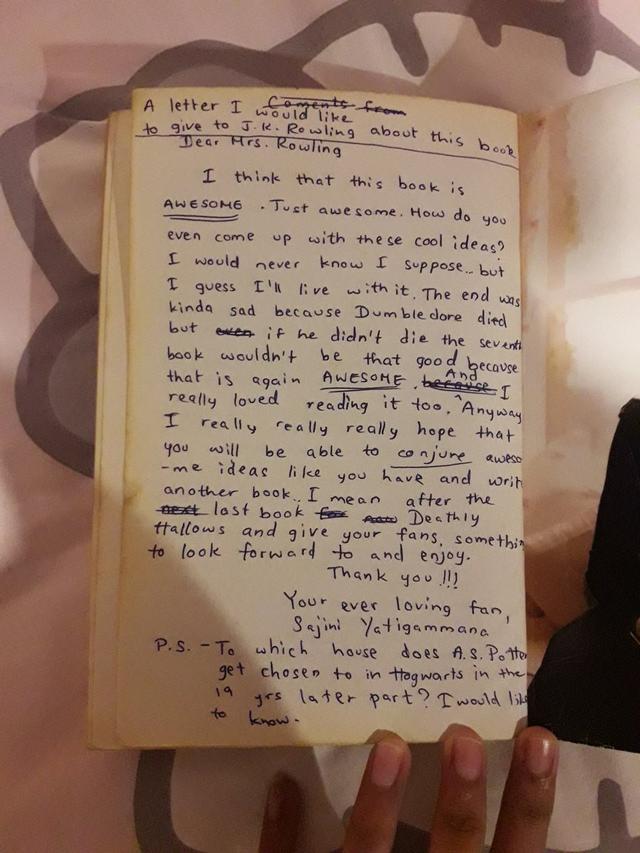 A letter I Coments from
would like
to give to J.K. Rowling about this book
Dear Mrs. Rowling
I think that this book is
AWESOME. Just awesome. How do you
even come up with these cool ideas?
I would never know I suppose... but
I guess I'll live with it. The end was
kinda sad because Dumbledore died
but even if he didn't die the seventh
book wouldn't be that good because
that is again AWESOME. because And I
really loved reading it too. Anyway
I really really really hope that
you will be able to conjure aweso
-me ideas like you have and write
another book.. I mean after the
next last book for Deathly
Hallows and give your fans, somethin
to look forward to and enjoy.
Thank you!!!
Your ever loving fan,
Sajini Yatigammana
P.S. - To which house does A.S. Potter
get chosen to in Hogwarts in the
19 yrs later part? I would like
to know.